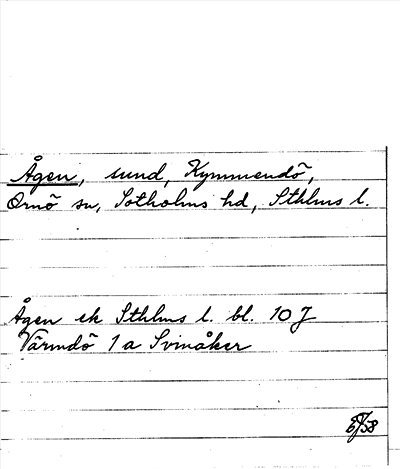 Ågen, sund, Kymmendö,
Ornö sn, Sotholms hd, Sthlms l.
Ågen ek Sthlms l. bl. 10 J
Värmdö 1 a Svinåker
58